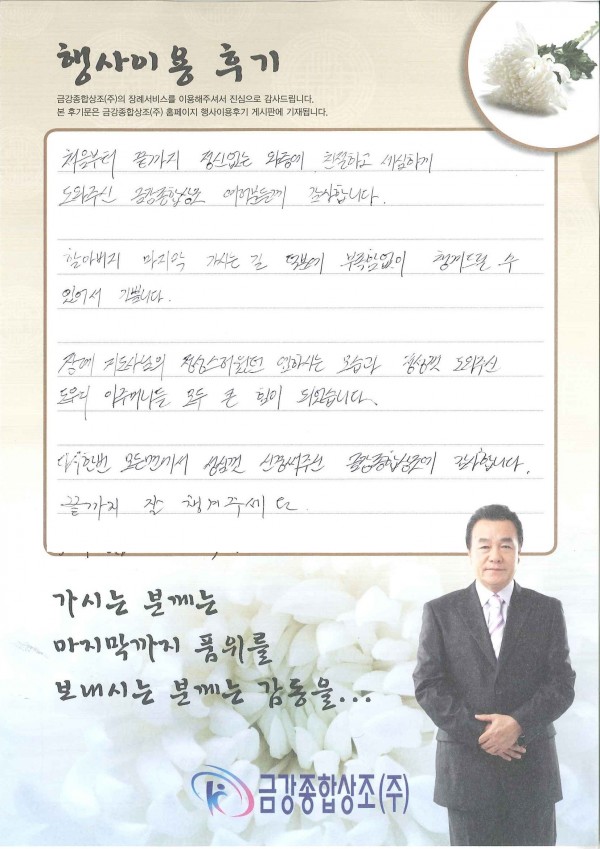 행사이용 후기
금강종합상조(주)의 장례서비스를 이용해주셔서 진심으로 감사드립니다.
본 후기문은 금강종합상조(주) 홈페이지 행사이용후기 게시판에 기재됩니다.
처음부터 끝까지 정신없는 와중에 친절하고 세심하게
도와주신 금강종합상조 여러분들께 감사합니다.
할아버지 마지막 가시는 길 부족함없이 챙겨드릴 수
있어서 기쁩니다.
장례 지도사님의 정성스러웠던 모습과 도와주신
도우미 아주머니들 모두 큰 힘이 되었습니다.
다시한번 모든면에서 성심껏 신경써주신 금강종합상조에 감사합니다.
끝까지 잘 챙겨주세요.
가시는 분께는
마지막까지 품위를
보내시는 분께는 감동을...
금강종합상조(주)